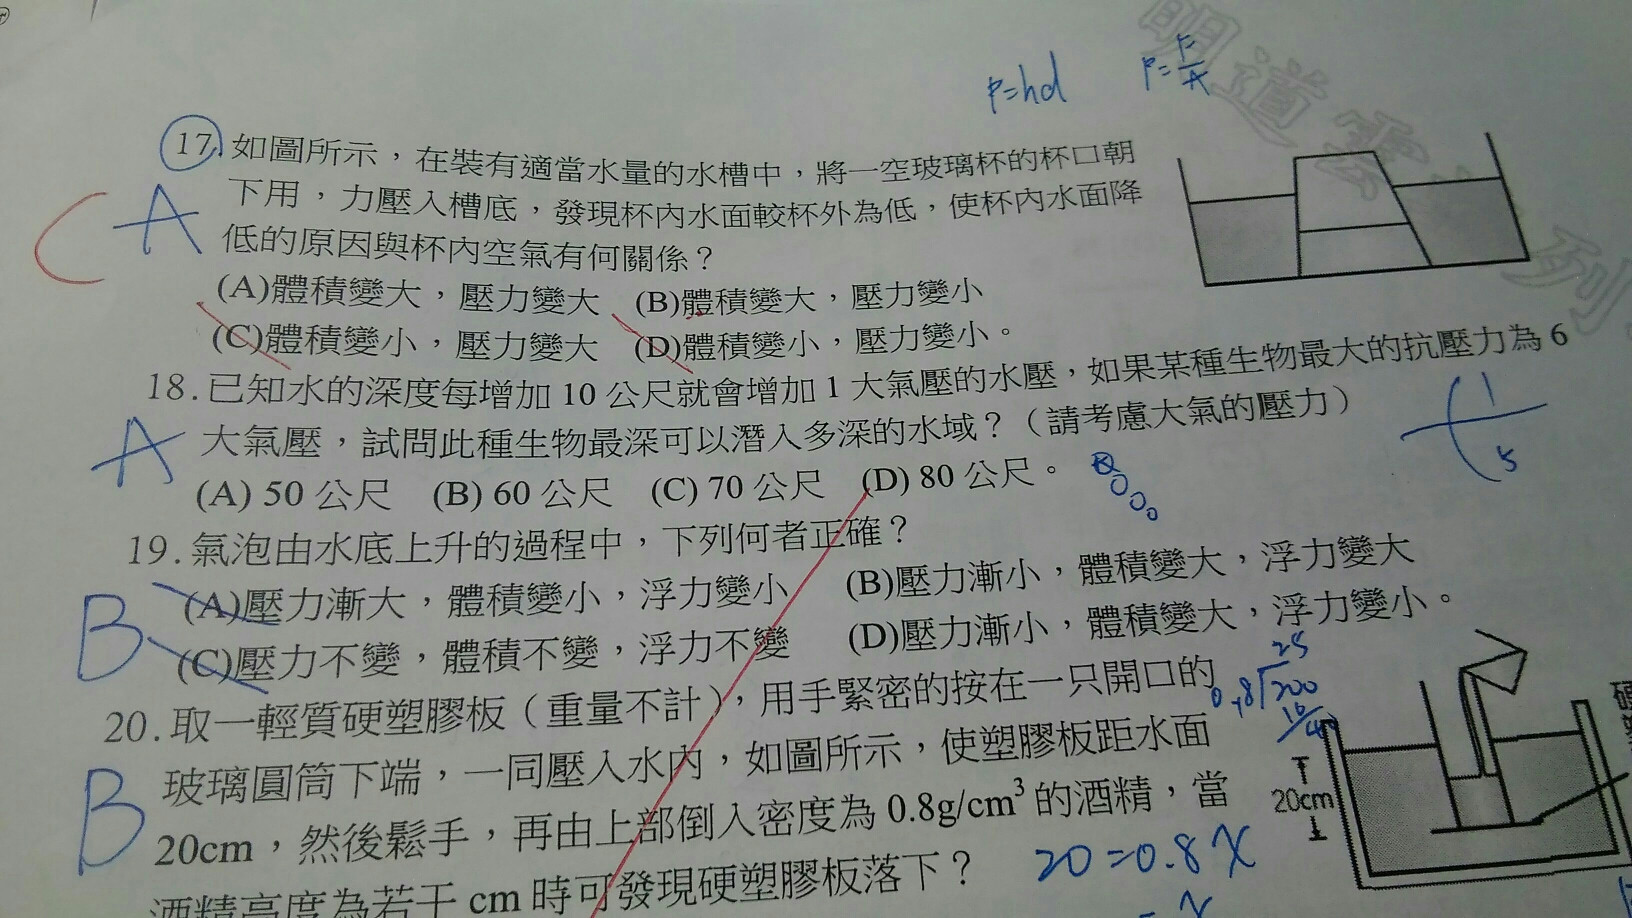 P=hd P=F/A
明道雲 列
17.如圖所示,在裝有適當水量的水槽中,將一空玻璃杯的杯口朝
C A 下用,力壓入槽底,發現杯內水面較杯外為低,使杯內水面降
低的原因與杯內空氣有何關係?
(A)體積變大,壓力變大 (B)體積變大,壓力變小
(C)體積變小,壓力變大 (D)體積變小,壓力變小。
18.已知水的深度每增加 10 公尺就會增加 1 大氣壓的水壓,如果某種生物最大的抗壓力為 6
A 大氣壓,試問此種生物最深可以潛入多深的水域?(請考慮大氣的壓力)
1
5
(A) 50 公尺 (B) 60 公尺 (C) 70 公尺 (D) 80 公尺。
19.氣泡由水底上升的過程中,下列何者正確?
B (A)壓力漸大,體積變小,浮力變小 (B)壓力漸小,體積變大,浮力變大
(C)壓力不變,體積不變,浮力不變 (D)壓力漸小,體積變大,浮力變小。
20.取一輕質硬塑膠板(重量不計),用手緊密的按在一只開口的
25
0.8 200
B 玻璃圓筒下端,一同壓入水內,如圖所示,使塑膠板距水面
20cm
20cm,然後鬆手,再由上部倒入密度為 0.8g/cm³ 的酒精,當
20=0.8X
酒精高度為若干 cm 時可發現硬塑膠板落下?
=X